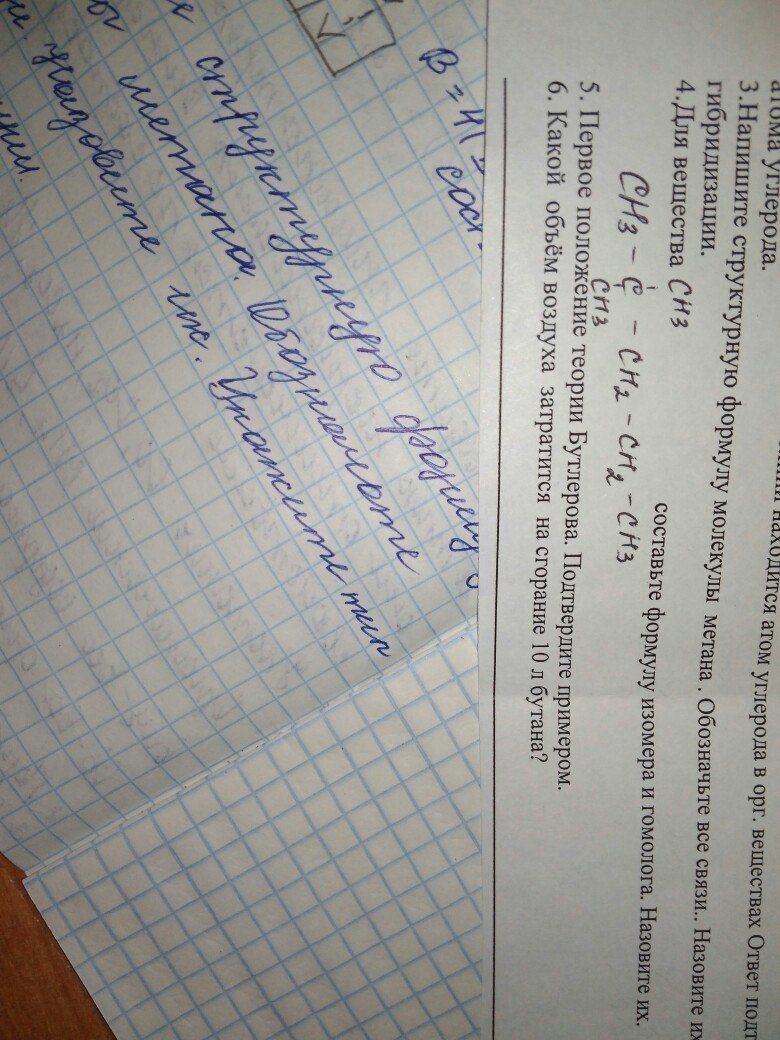 атома углерода.
находится атом углерода в орг. веществах Ответ подт
3.Напишите структурную формулу молекулы метана . Обозначьте все связи.. Назовите их
гибридизации.
4.Для вещества CH3
CH3 - C - CH2 - CH2 - CH3
CH3
составьте формулу изомера и гомолога. Назовите их.
5. Первое положение теории Бутлерова. Подтвердите примером.
6. Какой объём воздуха затратится на сгорание 10 л бутана?
структурную форму
метана. Обозначьте
назовите их. Укажите тип